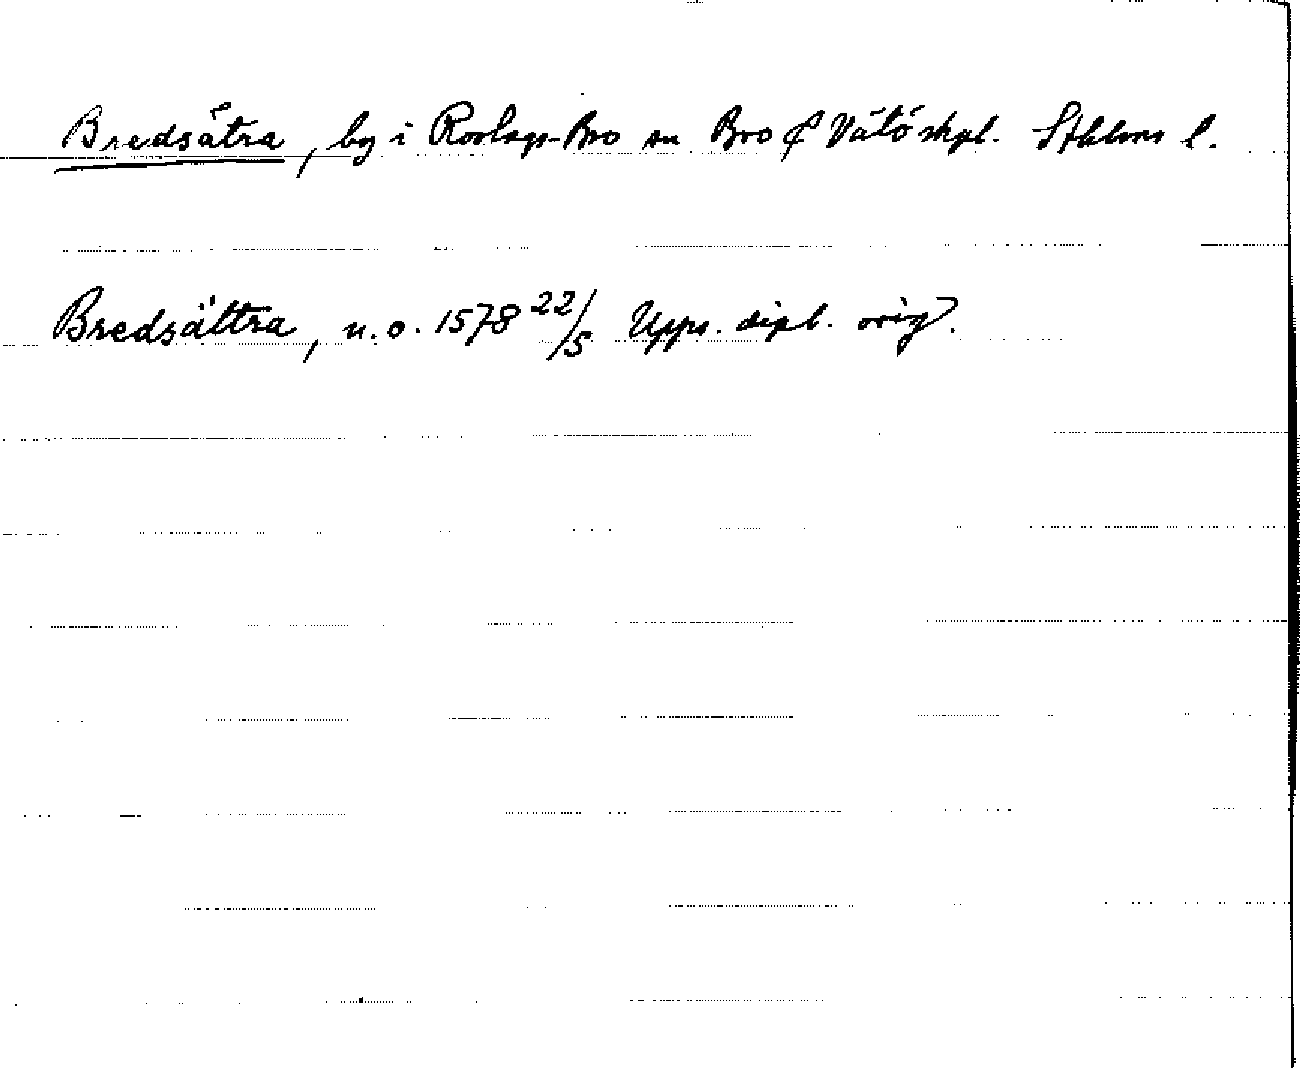 Bredsätra, by i Roslags-Bro sn Bro & Vätö skpl. Sthlms l.
Bredsättra, n.o. 1578 22/5 Upps. dipl. orig.